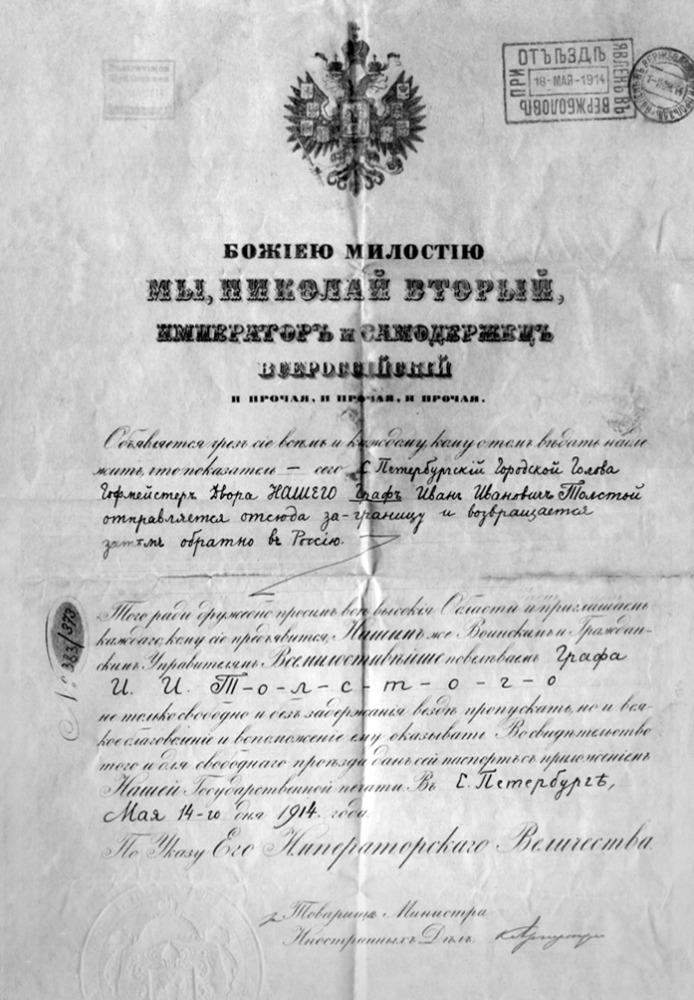 ПРИ ОТЪѢЗДѢ ЯВЛЕНЪ ВЪ
18-МАЯ-1914
ВЕРЖБОЛОВѢ
БОЖІЕЮ МИЛОСТІЮ
МЫ, НИКОЛАЙ ВТОРЫЙ,
ИМПЕРАТОРЪ и САМОДЕРЖЕЦЪ
ВСЕРОССІЙСКІЙ
И ПРОЧАЯ, И ПРОЧАЯ, И ПРОЧАЯ.
Объявляется чрезъ сіе всѣмъ и каждому, кому о томъ вѣдать надле
житъ, что показатель — сего С Петербургскій Городской Голова
Гофмейстеръ Двора НАШЕГО Графъ Иванъ Ивановичъ Толстой
отправляется отсюда за-границу и возвращается
затѣмъ обратно въ Россію.
Того ради дружебно просимъ всѣ высокія Области и приглашаемъ
каждаго, кому сіе предъявится, Нашимъ же Воинскимъ и Граждан-
скимъ Управителямъ Всемилостивѣйше повелѣваемъ Графа
И. И. Т-о-л-с-т-о-г-о
не только свободно и безъ задержанія вездѣ пропускать, но и вся-
кое благоволеніе и вспоможеніе ему оказывать. Во свидѣтельство
того и для свободнаго проѣзда данъ сей паспортъ съ приложеніемъ
Нашей Государственной печати. Въ С. Петербургѣ,
Мая 14-го дня 1914 года.
По Указу Его Императорскаго Величества.
№ 383/373
Товарищъ Министра
Иностранныхъ Дѣлъ